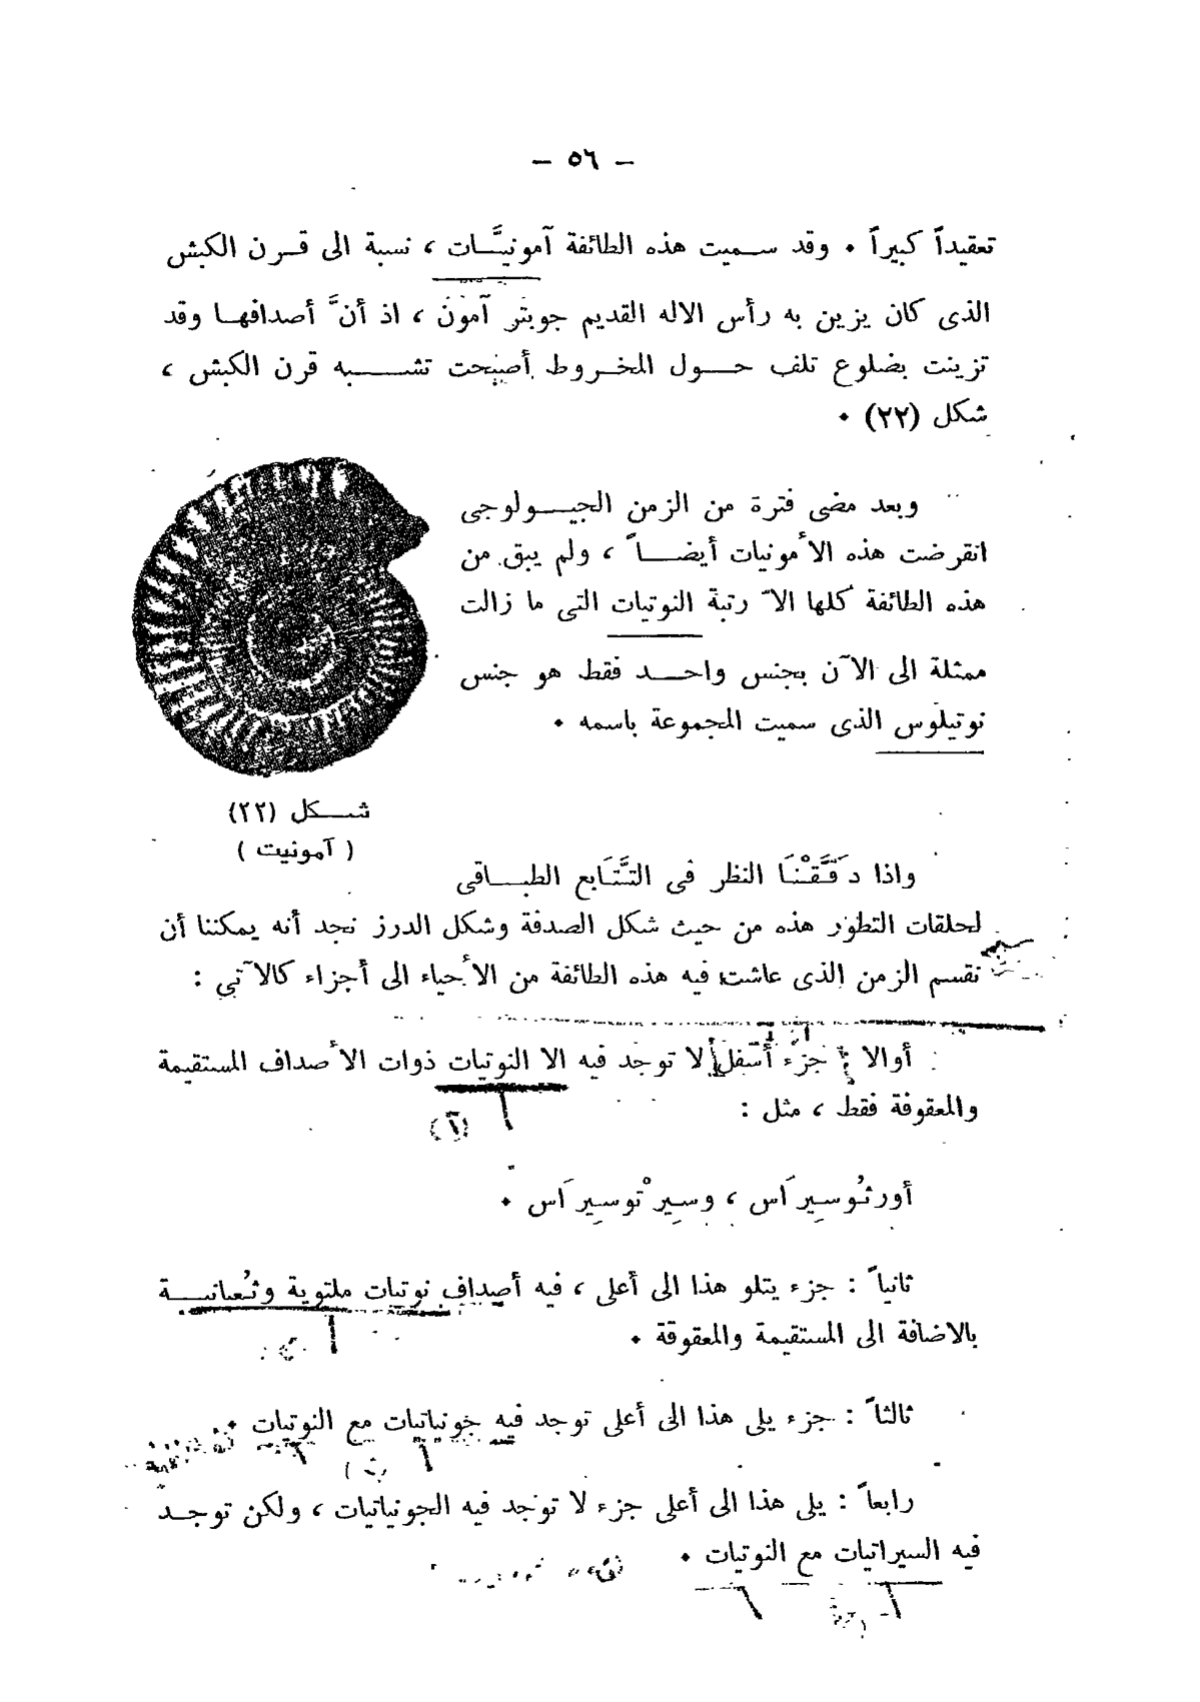 — ٥٦ —
تعقيداً كبيراً . وقد سميت هذه الطائفة آمونيَّات ، نسبة الى قرن الكبش
الذى كان يزين به رأس الاله القديم جوبتر آمون ، اذ أنَّ أصدافها وقد
تزينت بضلوع تلف حول المخروط أصبحت تشبه قرن الكبش ،
شكل (٢٢) .
وبعد مضى فترة من الزمن الجيولوجى
انقرضت هذه الأمونيات أيضاً ، ولم يبق من
هذه الطائفة كلها الاّ رتبة النوتيات التى ما زالت
ممثلة الى الآن بجنس واحد فقط هو جنس
نوتيلوس الذى سميت المجموعة باسمه .
شكل (٢٢)
( آمونيت )
واذا دَقَّقْنَا النظر فى التَّتَابع الطباقى
لحلقات التطور هذه من حيث شكل الصدفة وشكل الدرز نجد أنه يمكننا أن
نقسم الزمن الذى عاشت فيه هذه الطائفة من الأحياء الى أجزاء كالآتي :
أوالا : جزء أسفل لا توجد فيه الا النوتيات ذوات الأصداف المستقيمة
والمعقوفة فقط ، مثل :
أورثُوسِيرَاس ، وسِيرْتوسِيرَاس .
ثانياً : جزء يتلو هذا الى أعلى ، فيه أصداف نوتيات ملتوية وثعبانية
بالاضافة الى المستقيمة والمعقوقة .
ثالثاً : جزء يلى هذا الى أعلى توجد فيه جونياتيات مع النوتيات .
رابعاً : يلى هذا الى أعلى جزء لا توجد فيه الجونياتيات ، ولكن توجد
فيه السيراتيات مع النوتيات .